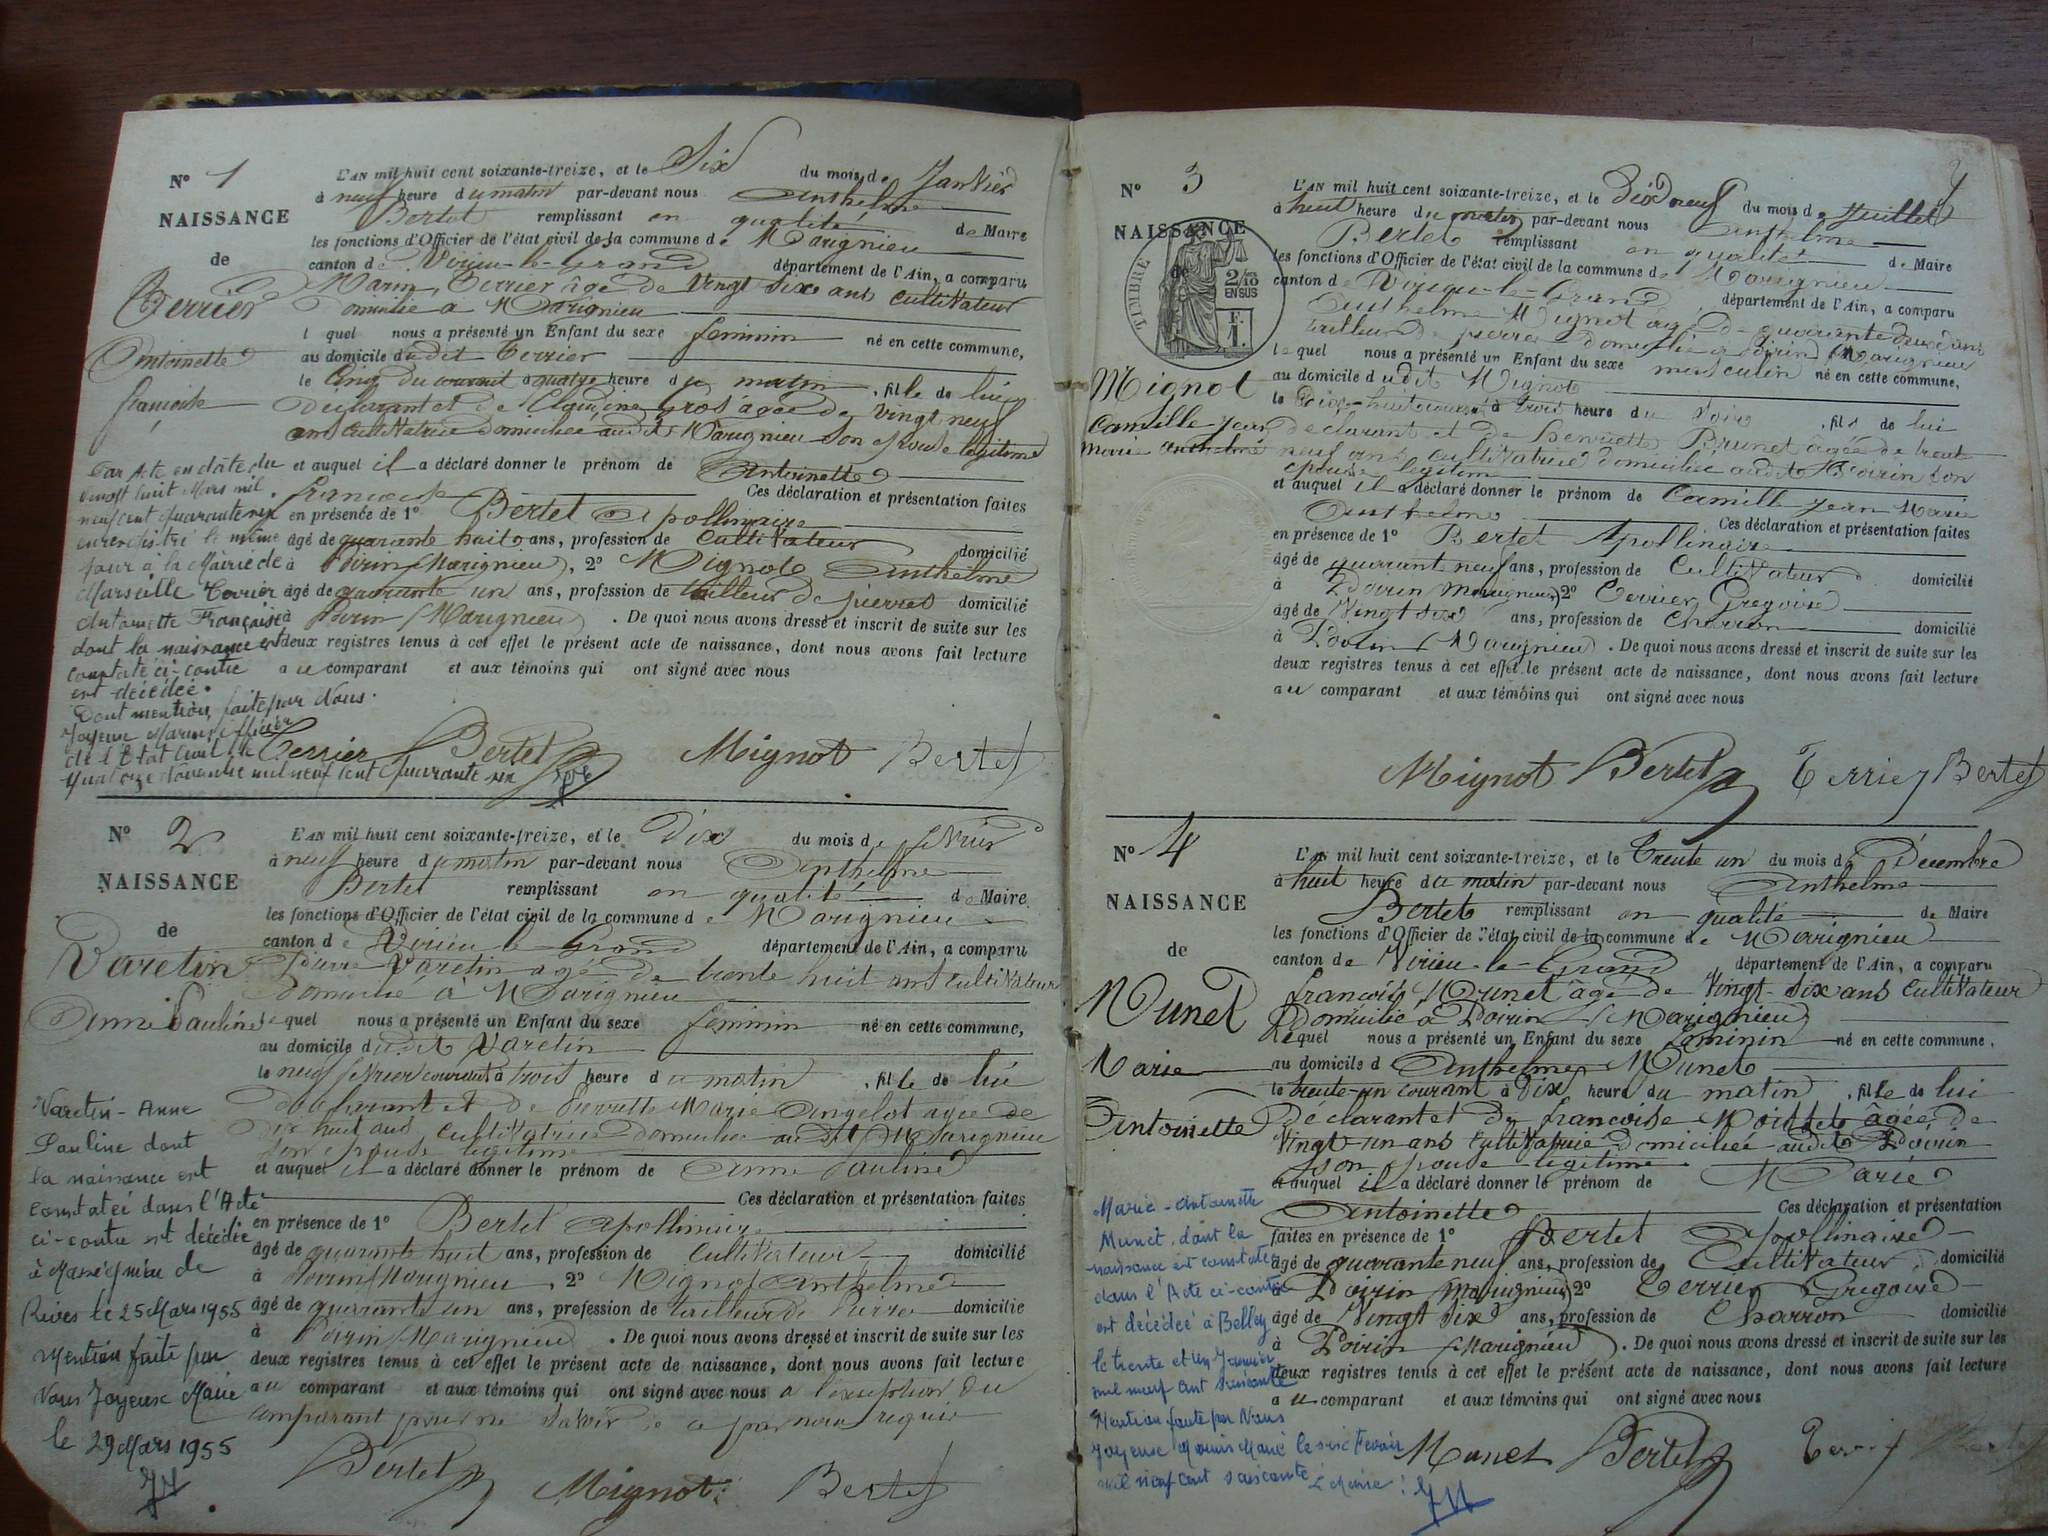 N° 1
NAISSANCE
de
Terrier
Antoinette
françoise
L'AN mil huit cent soixante-treize, et le Six du mois de Janvier
à neuf heure du matin par-devant nous Anthelme
Bertet remplissant en qualité de Maire
les fonctions d'Officier de l'état civil de la commune de Marignieu
canton de Virieu-le-Grand département de l'Ain, a comparu
Marin Terrier âgé de Vingt six ans cultivateur
Domicilié a Marignieu
lequel nous a présenté un Enfant du sexe feminin né en cette commune,
au domicile dudit Terrier
le Cinq du courant à quatre heure du matin, fille de lui
Declarant et de Claudine Gros agée de vingt neuf
ans cultivatrice domiciliée audit Marignieu son epouse legitime
et auquel il a déclaré donner le prénom de Antoinette
françoise Ces déclaration et présentation faites
en présence de 1° Bertet Apollinaire
âgé de quarante huit ans, profession de Cultivateur domicilié
à Poirin (Marignieu), 2° Mignot Anthelme
âgé de quarante un ans, profession de tailleur de pierres domicilié
à Poirin (Marignieu). De quoi nous avons dressé et inscrit de suite sur les
deux registres tenus à cet effet le présent acte de naissance, dont nous avons fait lecture
au comparant et aux témoins qui ont signé avec nous
Par Acte en date du
vingt huit Mars mil
neuf cent quarante six
enregistré le même
jour à la Mairie de
Marseille Terrier
Antoinette Française
dont la naissance est
constatée ci-contre
est décédée.
Dont mention, faite par Nous.
Joyeux Marius Officier
de l'Etat Civil le
quatorze novembre mil neuf cent quarante six
Terrier Bertet Mignot Bertet
N° 2
NAISSANCE
de
Varetin
Anne Pauline
L'AN mil huit cent soixante-treize, et le Dix du mois de fevrier
à neuf heure du matin par-devant nous Anthelme
Bertet remplissant en qualité de Maire
les fonctions d'Officier de l'état civil de la commune de Marignieu
canton de Virieu le Grand département de l'Ain, a comparu
Pierre Varetin agé de trente huit ans cultivateur
Domicilié à Marignieu
lequel nous a présenté un Enfant du sexe feminin né en cette commune,
au domicile dudit Varetin
le neuf fevrier courant à trois heure du matin, fille de lui
declarant et de Pierrette Marie Angelot agée de
dix huit ans cultivatrice domiciliée audit Marignieu
son epouse legitime
et auquel il a déclaré donner le prénom de Anne Pauline
Ces déclaration et présentation faites
en présence de 1° Bertet Apollinaire
âgé de quarante huit ans, profession de Cultivateur domicilié
à Poirin (Marignieu, 2° Mignot Anthelme
âgé de quarante un ans, profession de tailleur de Pierre domicilié
à Poirin (Marignieu). De quoi nous avons dressé et inscrit de suite sur les
deux registres tenus à cet effet le présent acte de naissance, dont nous avons fait lecture
au comparant et aux témoins qui ont signé avec nous a l'exception du
comparant pour ne savoir de ce par nous requis
Varetin - Anne
Pauline dont
la naissance est
constatée dans l'Acte
ci-contre est décédée
à Marignieu de
Rives le 25 Mars 1955
Mention faite par
Nous Joyeux Maire
le 29 Mars 1955
Bertet Mignot Bertet
N° 3
NAISSANCE
de
TIMBRE
2/10
EN SUS
F.
1.
Mignot
Camille Jean
Marie Anthelme
L'AN mil huit cent soixante-treize, et le Dix neuf du mois de Juillet
à huit heure du matin par-devant nous Anthelme
Bertet remplissant en qualité de Maire
les fonctions d'Officier de l'état civil de la commune de Marignieu
canton de Virieu-le-Grand département de l'Ain, a comparu
Anthelme Mignot agé de quarante deux ans
tailleur de pierres domicilié a Poirin (Marignieu
lequel nous a présenté un Enfant du sexe masculin né en cette commune,
au domicile dudit Mignot
le Dix-huit courant à trois heure du soir, fils de lui
declarant et de Henriette Brunet agée de trente
neuf ans cultivatrice domiciliée audit Poirin son
epouse legitime
et auquel il a déclaré donner le prénom de Camille Jean Marie
Anthelme Ces déclaration et présentation faites
en présence de 1° Bertet Apollinaire
âgé de quarante neuf ans, profession de Cultivateur domicilié
à Poirin Marignieu) 2° Terrier Gregoire
âgé de Vingt six ans, profession de Charron domicilié
à Poirin (Marignieu). De quoi nous avons dressé et inscrit de suite sur les
deux registres tenus à cet effet le présent acte de naissance, dont nous avons fait lecture
au comparant et aux témoins qui ont signé avec nous
Mignot Bertet Terrier Bertet
N° 4
NAISSANCE
de
Munet
Marie
Antoinette
L'AN mil huit cent soixante-treize, et le Trente un du mois de Décembre
à huit heure du matin par-devant nous Anthelme
Bertet remplissant en qualité de Maire
les fonctions d'Officier de l'état civil de la commune de Marignieu
canton de Virieu-le-Grand département de l'Ain, a comparu
françois Munet âgé de Vingt-six ans Cultivateur
domicilié a Poirin (Marignieu)
lequel nous a présenté un Enfant du sexe feminin né en cette commune,
au domicile d Anthelme Munet
le trente-un courant à Dix heure du matin, fille de lui
déclarant et de francoise âgée de
Vingt-un ans Cultivatrice domiciliée audit Poirin
son epouse legitime
et auquel il a déclaré donner le prénom de Marie
Antoinette Ces déclaration et présentation
faites en présence de 1° Bertet Apollinaire
âgé de quarante neuf ans, profession de Cultivateur domicilié
à Poirin Marignieu) 2° Terrier Gregoire
âgé de Vingt six ans, profession de Charron domicilié
à Poirin (Marignieu). De quoi nous avons dressé et inscrit de suite sur les
deux registres tenus à cet effet le présent acte de naissance, dont nous avons fait lecture
au comparant et aux témoins qui ont signé avec nous
Marie-Antoinette
Munet, dont la
naissance est constatée
dans l'Acte ci-contre
est décédée à Belley
le trente et un Janvier
mil neuf cent soixante
Mention faite par Nous
Joyeux Marius Maire le six Fevrier
mil neuf cent soixante Le Maire :
Munet Bertet Terrier Bertet